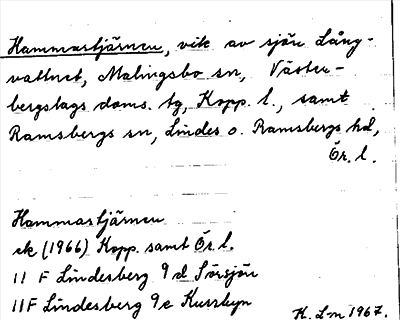 Hammastjärnen, vik av sjön Lång-
vattnet, Malingsbo sn, Väster-
bergslags doms. tg, Kopp. l., samt
Ramsbergs sn, Lindes o. Ramsbergs hd,
Ör. l.
Hammastjärnen
ek (1966) Kopp. samt Ör. l.
11 F Lindesberg 9 d Sörsjön
11 F Lindesberg 9 e
K. L-m 1967.